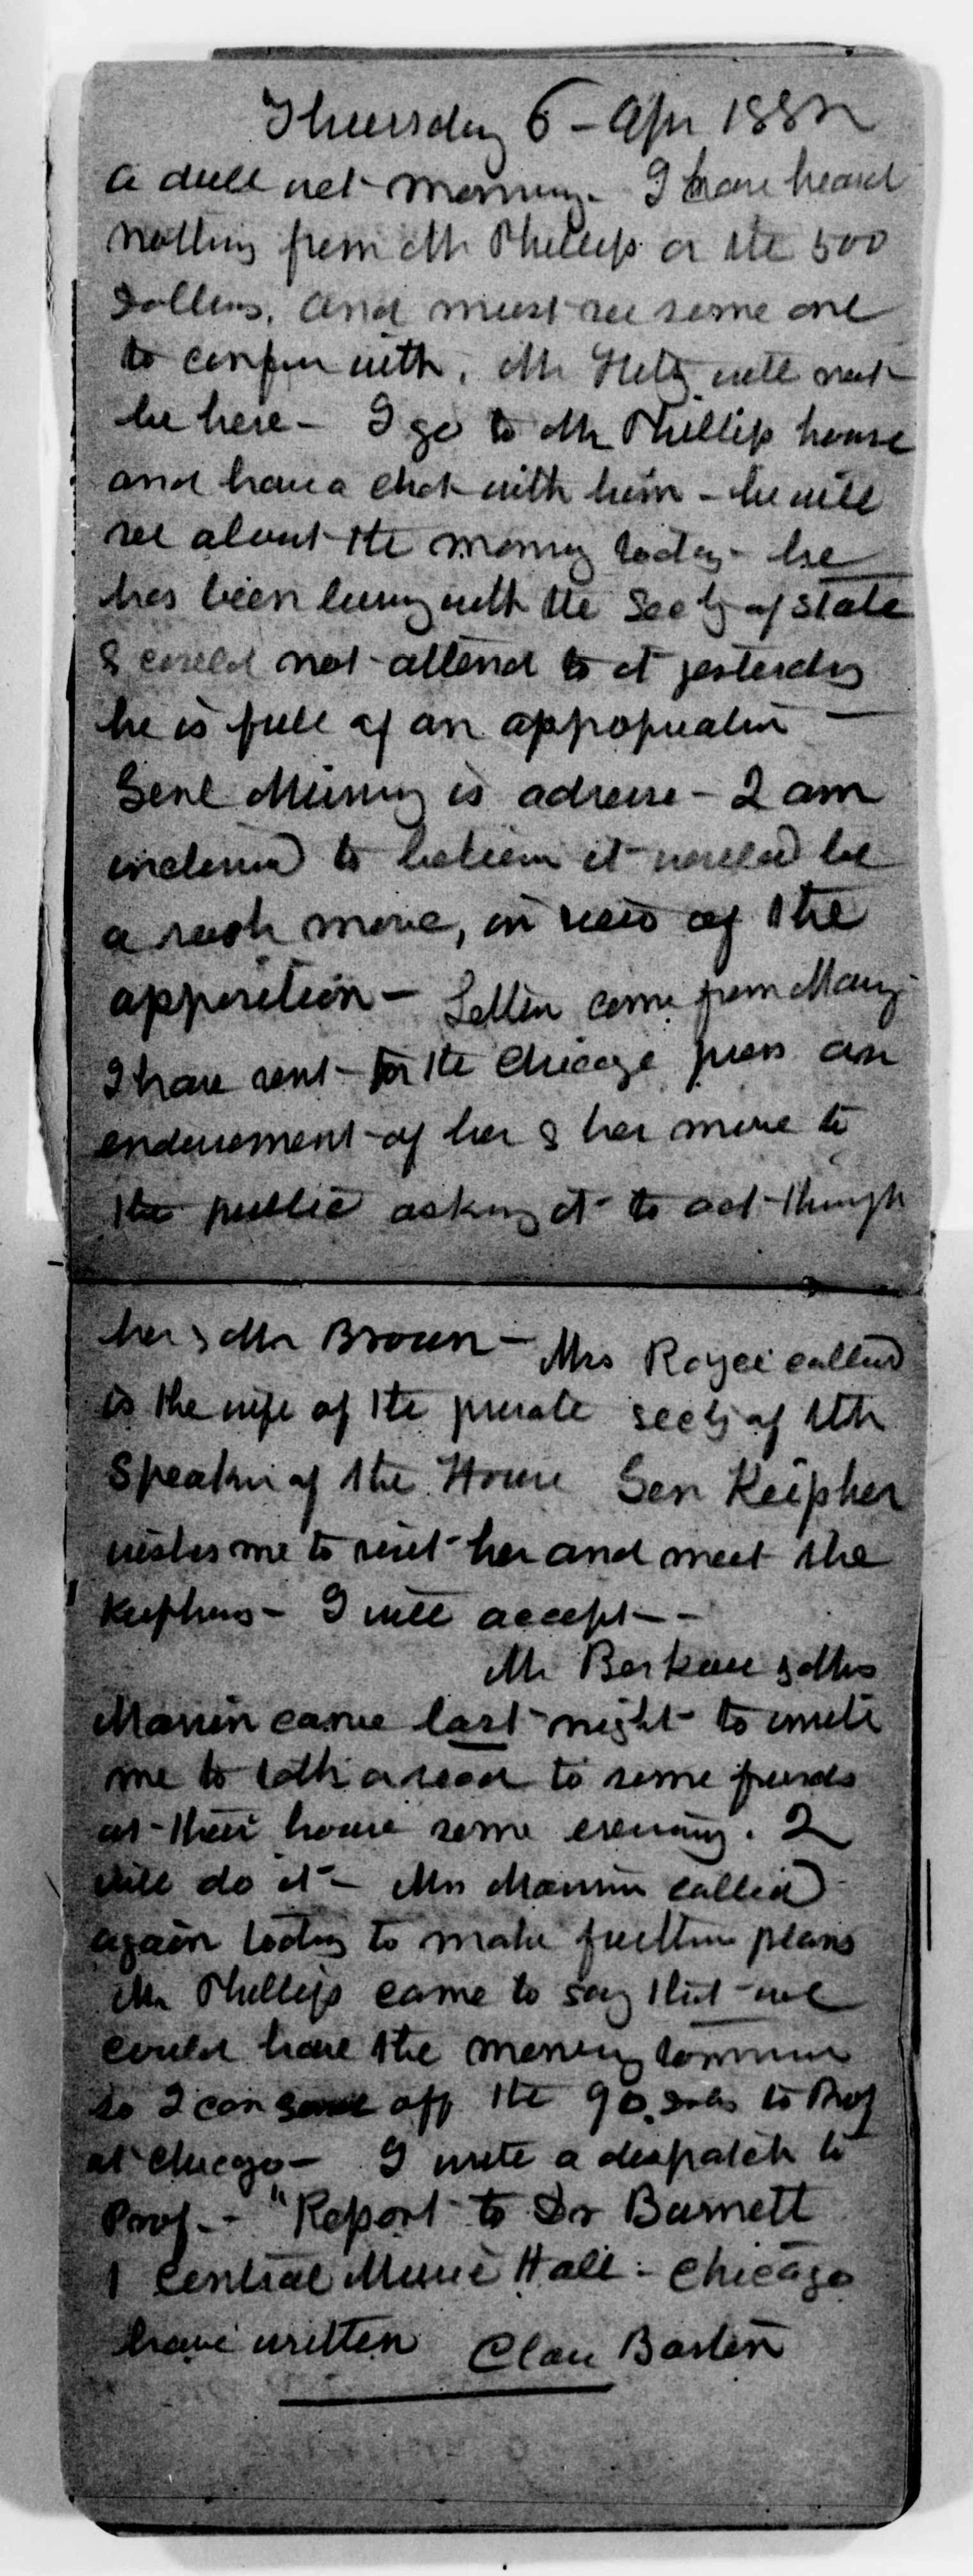 Thursday 6 - Apr 1882
A dull wet morning. I have heard
nothing from Mr Phillips or the 500
Dollars, and must see some one
to confer with, Mr Hitz will not
be here - I go to Mr Phillips house
and have a chat with him - he will
see about the money today - he
has been busy with the Secty of State
& could not attend to it yesterday
he is full of an appopriation -
Genl Mussey is adverse - I am
inclined to believe it would be
a rash move, in view of the
apposition - Letter come from Mary
I have sent for the Chicago press an
endorsement of her & her move to
the public asking it to act through
her & Mr Brown - Mrs Royce called
is the wife of the private secty of the
Speaker of the House Gen Keipher
wishes me to visit her and meet the
Keiphers - I will accept - -
Mr & Mrs
came last night to invite
me to talk or read to some friends
at their house some evening. I
will do it - Mrs called
again today to make further plans
Mr Phillips came to say that we
could have the money tomorrow
so I can send off the 90. dols to Prof
at Chicago - I write a despatch to
Prof. - "Report to Dr Burnett
1 Central Music Hall - Chicago
have written Clara Barton